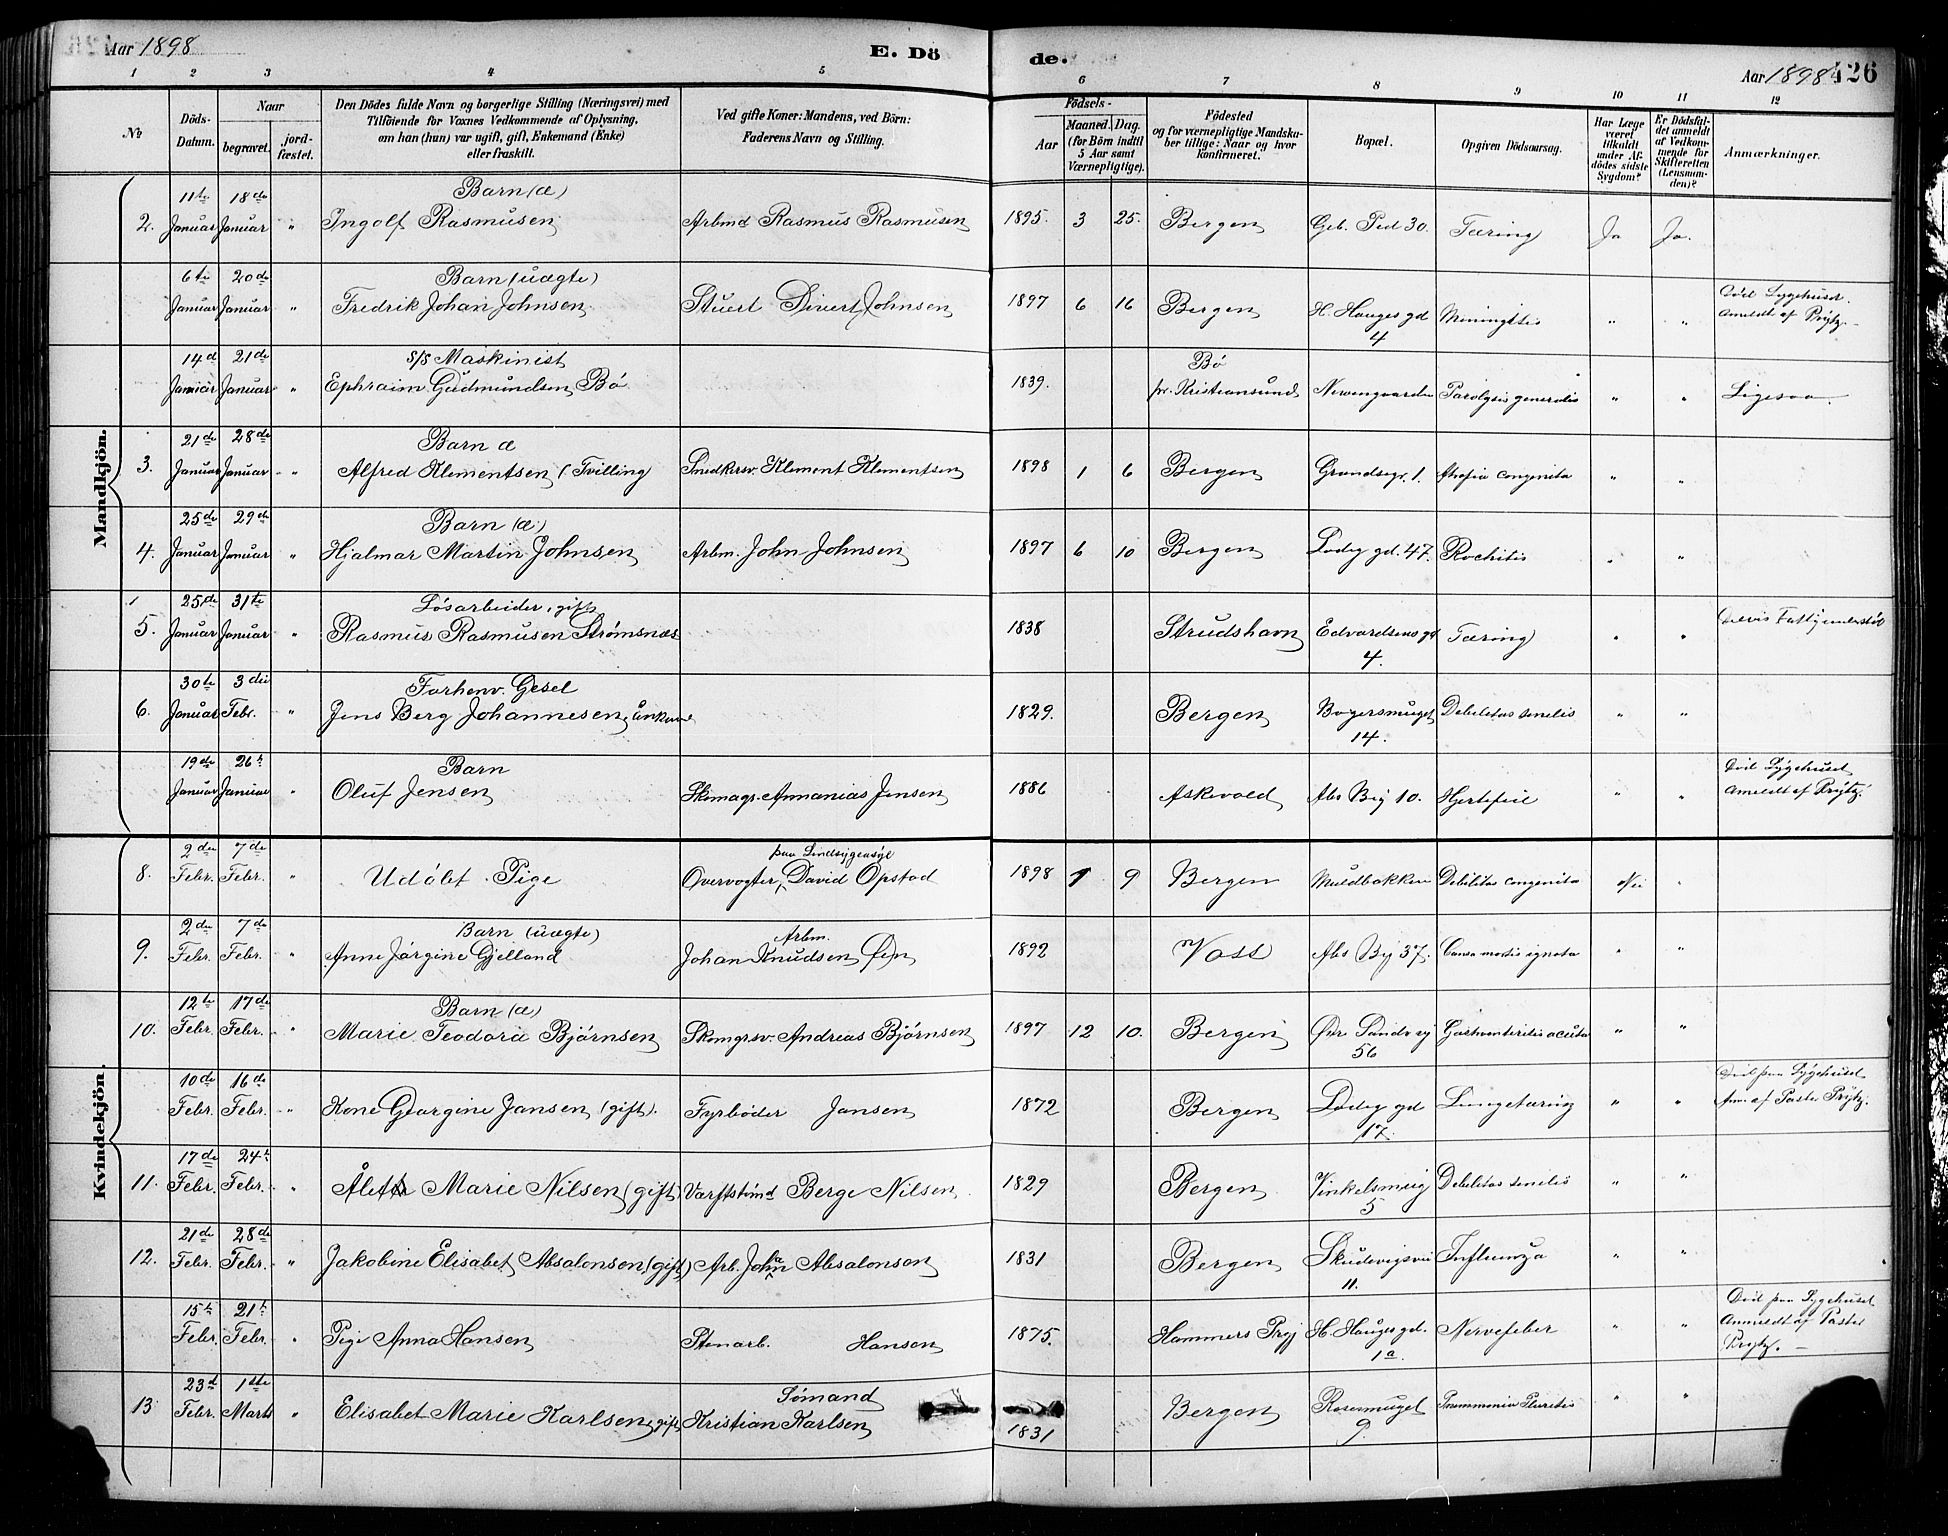 Aar 1898
E. Dö
de.
Aar 1898
426
1 2 3 4 5 6 7 8 9 10 11 12
No
Döds-Datum.
Naar
begravet.
jord-fæstet.
Den Dödes fulde Navn og borgerlige Stilling (Næringsvei) med
Tilföiende for Voxnes Vedkommende af Oplysning,
om han (hun) var ugift, gift, Enkemand (Enke)
eller fraskilt.
Ved gifte Koner: Mandens, ved Börn:
Faderens Navn og Stilling.
Födsels-
Aar
Maaned. Dag.
(for Börn indtil
5 Aar samt
Værnepligtige).
Födested
og for værnepligtige Mandska-
ber tillige: Naar og hvor
konfirmeret.
Bopæl.
Opgiven Dödsaarsag.
Har Læge
været
tilkaldt
under Af-
dödes sidste
Sygdom?
Er Dödsfal-
det anmeldt
af Vedkom-
mende for
Skifteretten
(Lensman-
den)?
Anmærkninger.
Mandkjön.
11te 18de Barn (æ)
2. Januar Januar " Ingolf Rasmusen Arbmd Rasmus Rasmusen 1895. 3 25. Bergen Geb. Ped 30. Tæring Ja Ja.
6te 20de Barn (uægte) Död Sygehuset.
Januar Januar " Fredrik Johan Johnsen Stuert Sivert Johnsen 1897 6 16 Bergen H. Hauges gd Meningitis " " Anmeldt af Prytz.
4
14d 21de S/S Maskinist Bö
Januar Januar " Ephraim Gudmundsen Bö 1839. pr. Kristiansund Newengaarden Paralysis generalis " " Ligesaa.
21de 28de Barn æ
3. Januar Januar " Alfred Klementsen (Tvilling) Snedkersv. Klement Klementsen 1898 1 6 Bergen 1. Atrofia congenita " "
25de 29de Barn (æ)
4. Januar Januar " Hjalmar Martin Johnsen Arbm. John Johnsen 1897 6 10 Bergen Lodeg gd. 47. Rachitis " "
25de 31te Lösarbeider, gift
5. Januar Januar " Rasmus Rasmusen Strömsnæs 1838 Strudshavn Edvardsens gd Tæring " "
4.
30te 3die Forhenv. Gesel
6. Januar Febr. " Jens Berg Johannesen, Enkem 1829. Bergen Debilitas senilis " "
14.
19de 26t Barn Död Sygehuset
Januar Januar " Oluf Jensen Skomags. Annanias Jensen 1886 Askevold Abs By 10. Hjertefeil " " Anmeldt af Prytz.
Kvindekjön.
2den 7de paa Sindsygeasyl
8. Febr. Febr. " Udöbt Pige Overvogter David Opstad 1898 1 9 Bergen Muldbakken Debilitas congenita Nei "
2den 7de Barn (uægte) Arbm.
9. Febr. Febr. " Anne Jörgine Gjelland Johan Knudsen Öen 1892 Voss Abs By 37. Causa mortis ignota " "
12te 17de Barn (æ)
10. Febr. Febr. " Marie Teodora Björnsen Skomgrsv. Andreas Björnsen 1897 12 10. Bergen Övr Sandv vj Gastroenteritis acuta " "
56
10de 16de Död paa Sygehuset
Febr. Febr. " Kone Georgine Jansen (gift). Fyrböder Jansen 1872 Bergen Lodeg gd Lungetæring " " Anm. af Pastor Prytz.
17.
17de 24t
11. Febr. Febr. " Marie Nilsen (gift) Berge Nilsen 1829 Bergen Vinkelsmug Debilitas senilis " "
5
21de 28de
12. Febr. Febr. " Jakobine Elisabet Absalonsen (gift) Arb. Johan Absalonsen 1831 Bergen Skudevigsvei Influenza " "
11.
15t 21t Död paa Sygehuset
Febr. Febr. " Pige Anna Hansen Stenarb. Hansen 1875. Hammers Prgj H. Hauges gd. Nervefeber " " Anmeldt af Pastor
1a. Prytz.
23d 1ste Sömand
13 Febr. Marts " Elisabet Marie Karlsen, gift Kristian Karlsen 1831 Bergen Rosesmuget Pneumonia Pluritis " "
9.